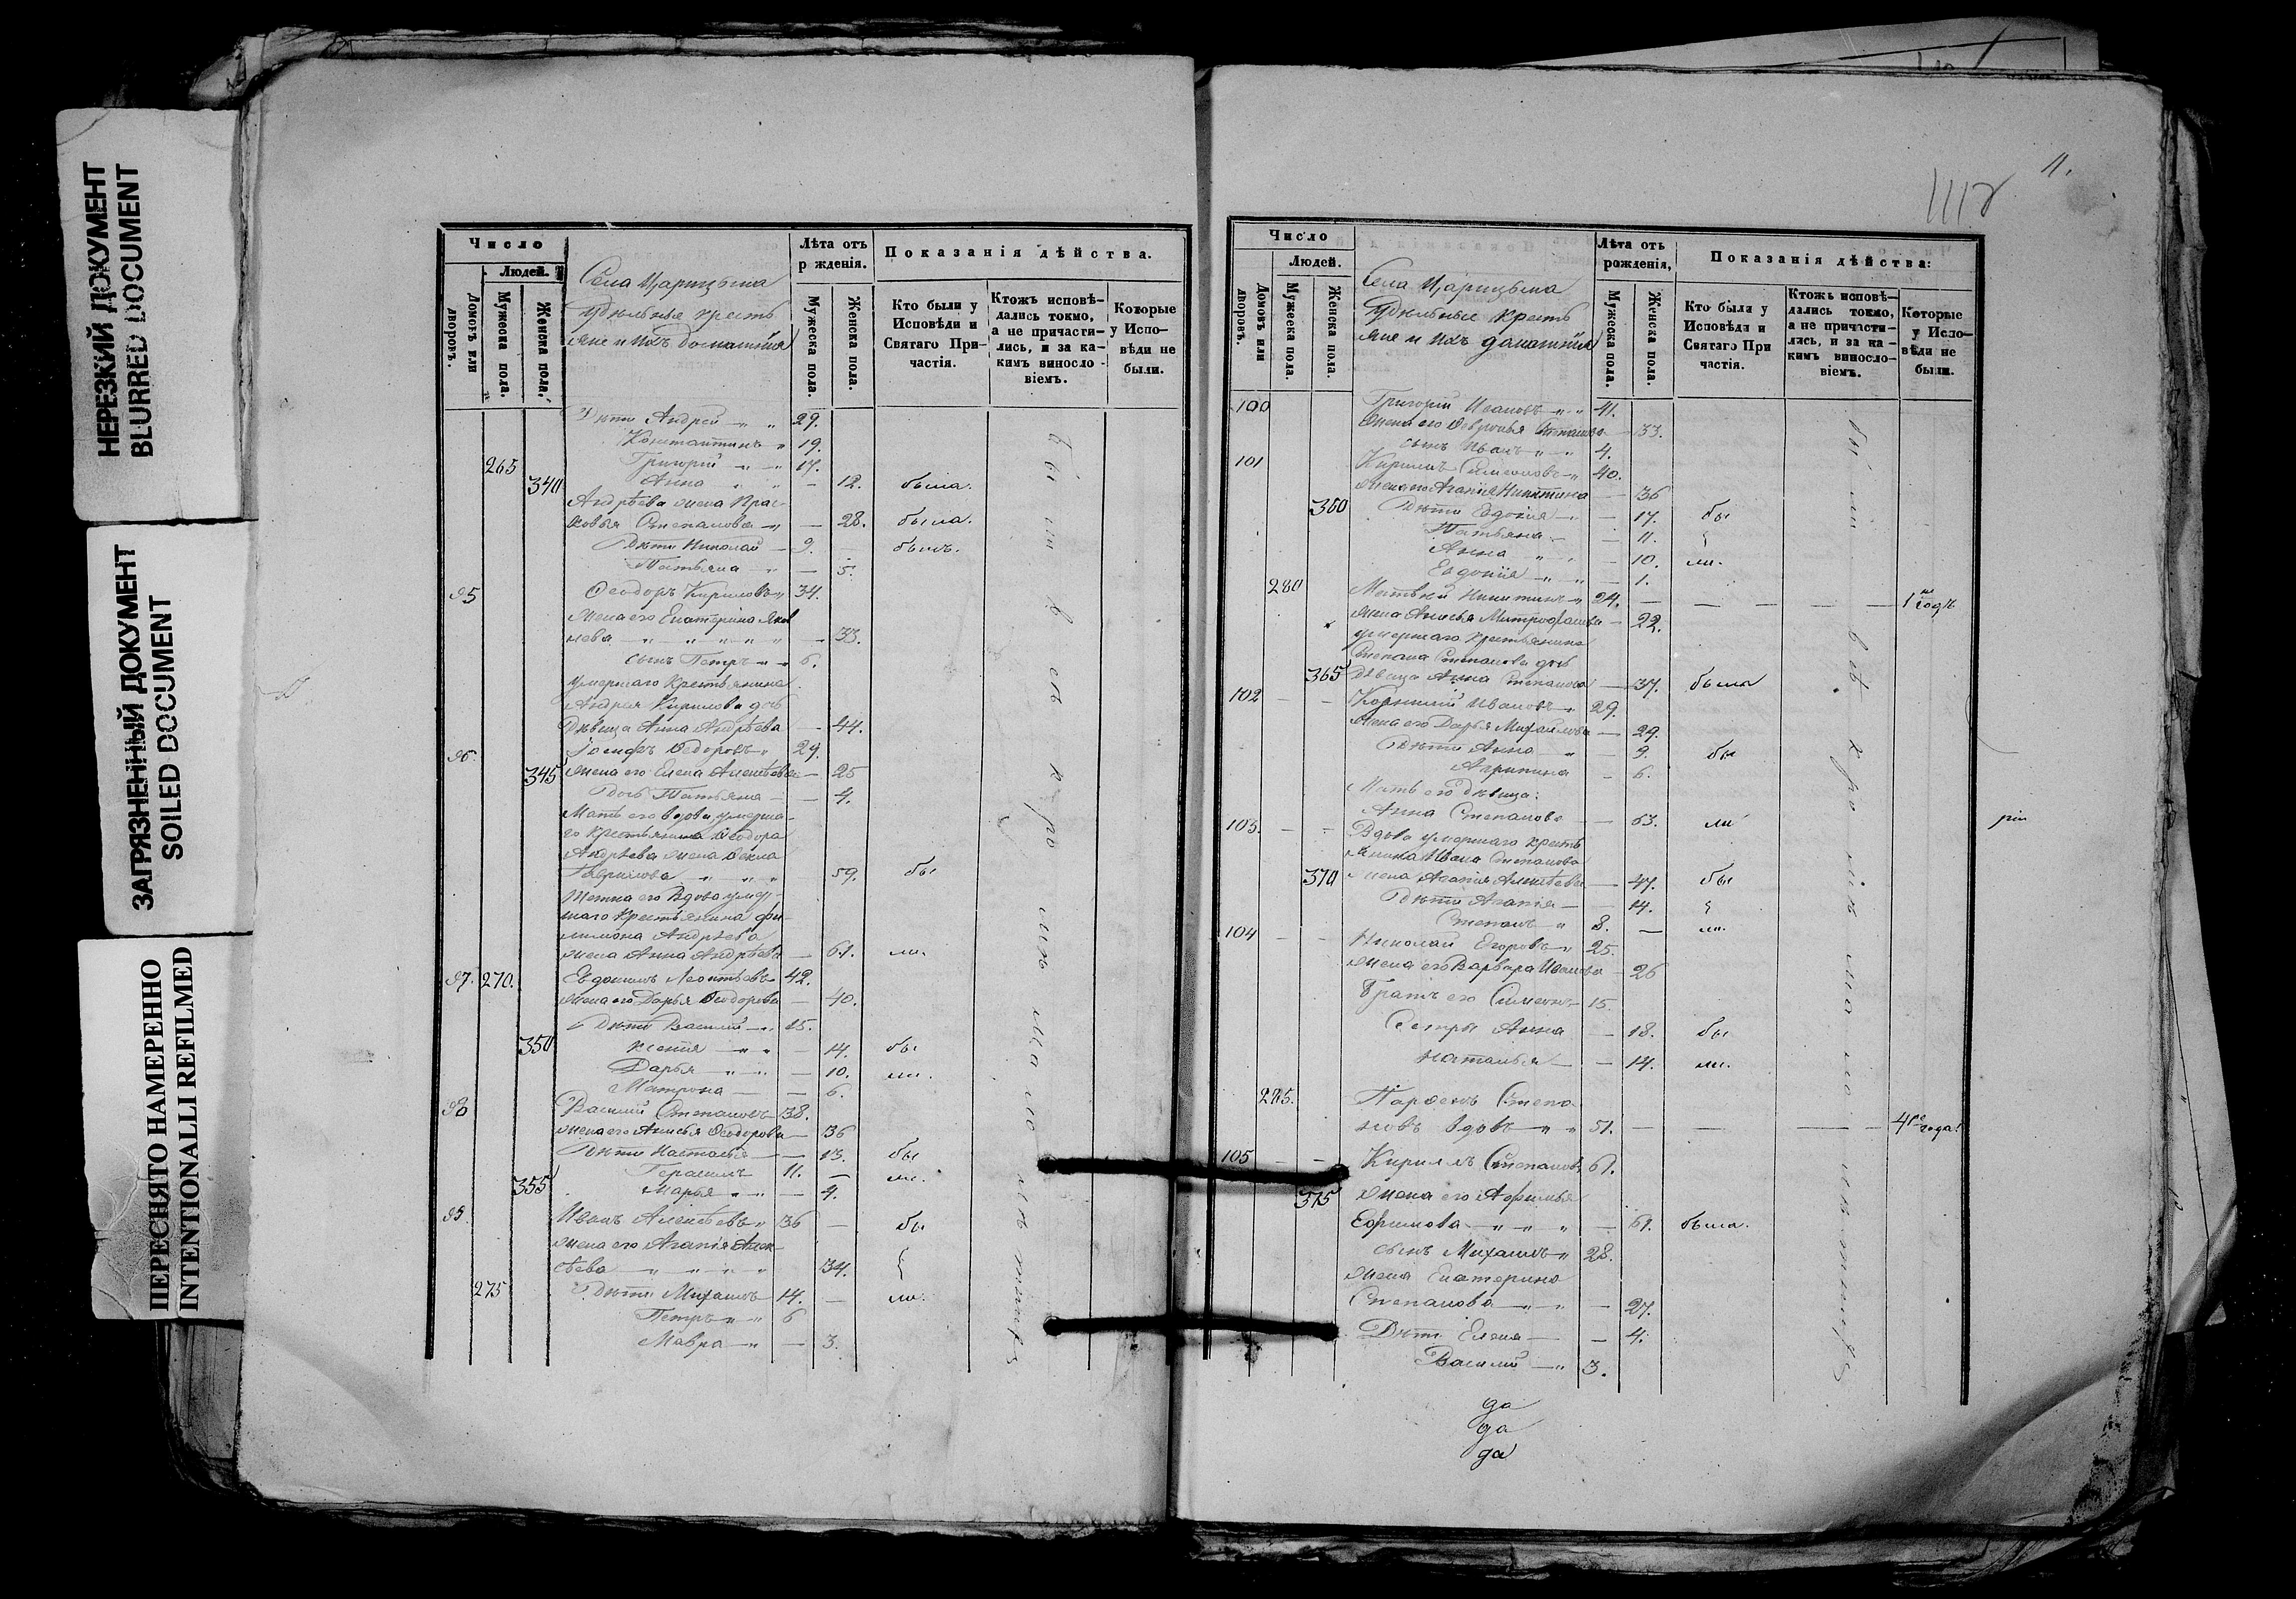 НЕРЕЗКИЙ ДОКУМЕНТ
BLURRED DOCUMENT
ЗАГРЯЗНЕННЫЙ ДОКУМЕНТ
SOILED DOCUMENT
ПЕРЕСНЯТО НАМЕРЕННО
INTENTIONALLI REFILMED
Число
Людей.
Домовъ или дворовъ.
Мужеска пола.
Женска пола.
Села Царицына
Удѣльные кресть
яне и ихъ домашнія
Лѣта отъ
р жденія.
Мужеска пола.
Женска пола.
Показанія дѣйства.
Кто были у
Исповѣди и
Святаго При-
частія.
Ктожъ исповѣ-
дались токмо,
а не причасти-
лись, и за ка-
кимъ виносло-
віемъ.
Которые
у Испо-
вѣди не
были.
Дѣти Андрей 29.
Константинъ 19.
265 Григорій 17.
340 Анна — 12. была.
Андрѣева жена Прас-
ковья Степанова — 28. была.
Дѣти Николай 9. былъ.
Татьяна — 5.
95 Ѳеодоръ Кириловъ 34.
жена его Екатерина Яков
лева — 33.
сынъ Петръ 6.
умершаго крестьянина
Андрея Кирилова дчь
дѣвица Анна Андрѣева — 44.
96. Іосифъ Ѳедоровъ 29.
345 жена его Елена Алексѣева — 25
дочь Татьяна — 4.
Мать его вдова, умерша-
го крестьянина Ѳеодора
Андрѣева жена Ѳекла
Гаврилова 59. бы
Тетка его вдова умер-
шаго крестьянина Фи-
лимона Андрѣева
жена Анна Андрѣева — 61. ли.
97. 270. Евдокимъ Леонтьевъ 42.
жена его Дарья Ѳеодорова — 40.
Дѣти Василій 15.
350 Ксенія — 14. бы
Дарья — 10. ли.
Матрона — 6.
98 Василій Степановъ 38.
жена его Анисья Ѳеодорова — 36
Дѣти Настасья — 13. бы
Герасимъ 11. — ли.
355 Марья — 4.
99. Иванъ Алексѣевъ 36 — бы
жена его Агапія Алек-
сѣева 34.
275 Дѣти Михаилъ 14. — ли.
Петръ 6
Мавра — 3.
11.
Число
Людей.
Домовъ или дворовъ.
Мужеска пола.
Женска пола.
Села Царицына
Удѣльные кресть
яне и ихъ домашнія
Лѣта отъ
рожденія,
Мужеска пола.
Женска пола.
Показанія дѣйства:
Кто были у
Исповѣди и
Святаго При
частія.
Ктожъ исповѣ-
дались токмо,
а не причасти-
лись, и за ка-
кимъ винносло-
віемъ.
Которые
у Испо-
вѣди не
были.
100 Григорій Ивановъ 41.
жена его Ѳевронья Степанова — 33.
сынъ Иванъ 4.
101 Кирилъ Симеоновъ 40.
жена его Агапія Никитина — 36
360 Дѣти Евдокія — 17. бы
Татьяна — 11.
Анна — 10. ли.
Евдокія — 1.
280 Матвѣй Никитинъ 24. — 1 не годъ
жена Анисья Митрофанова — 22.
умершаго крестьянина
Степана Степанова дчь
365 дѣвица Анна Степанова — 37. была
102 — Корнилій Ивановъ 29.
жена его Дарья Михаилова — 29.
Дѣти Анна — 9. бы
Агрипина — 6.
Мать его дѣвица:
Анна Степанова — 63. ли
103. Вдова умершаго кресть
янина Ивана Степанова
370 жена Агапія Алексѣева — 47. бы
Дѣти Агапія — 14.
Степанъ 8. — ли.
104 — Николай Егоровъ 25.
жена его Варвара Иванова — 26
Братъ его Симеонъ 15.
Сестры Анна — 18. бы
Наталья — 14. ли.
285. Парѳенъ Степа
новъ вдовъ 51. — 4 года!
105 — Кириллъ Степановъ 61.
375 жена его Афимья
Ефимова — 61. была.
сынъ Михаилъ 28.
жена Екатерина
Степанова — 27.
Дѣти Елена — 4.
Василій 3.
да
да
да